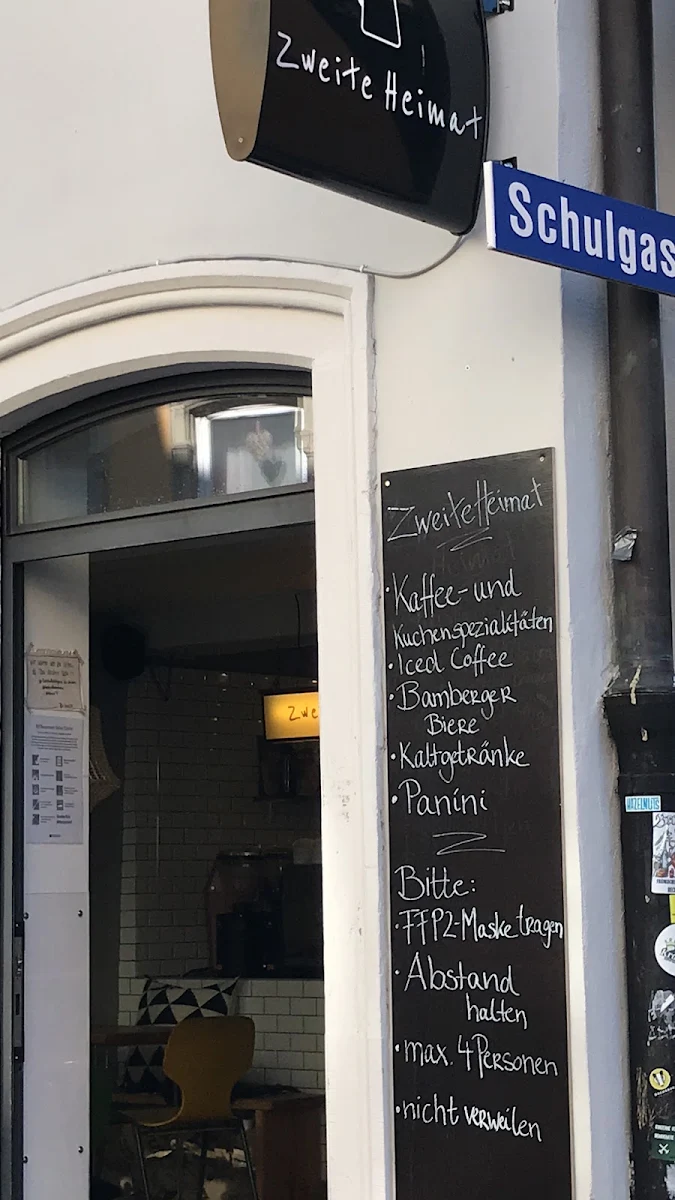 Zweite Heimat
Schulgas
Zweite Heimat
· Kaffee- und
Kuchenspezialitäten
· Iced Coffee
· Bamberger
Biere
· Kaltgetränke
· Panini
Bitte:
· FFP2-Maske tragen
· Abstand
halten
· max. 4 Personen
· nicht verweilen
Zwe
HAZELNUTS